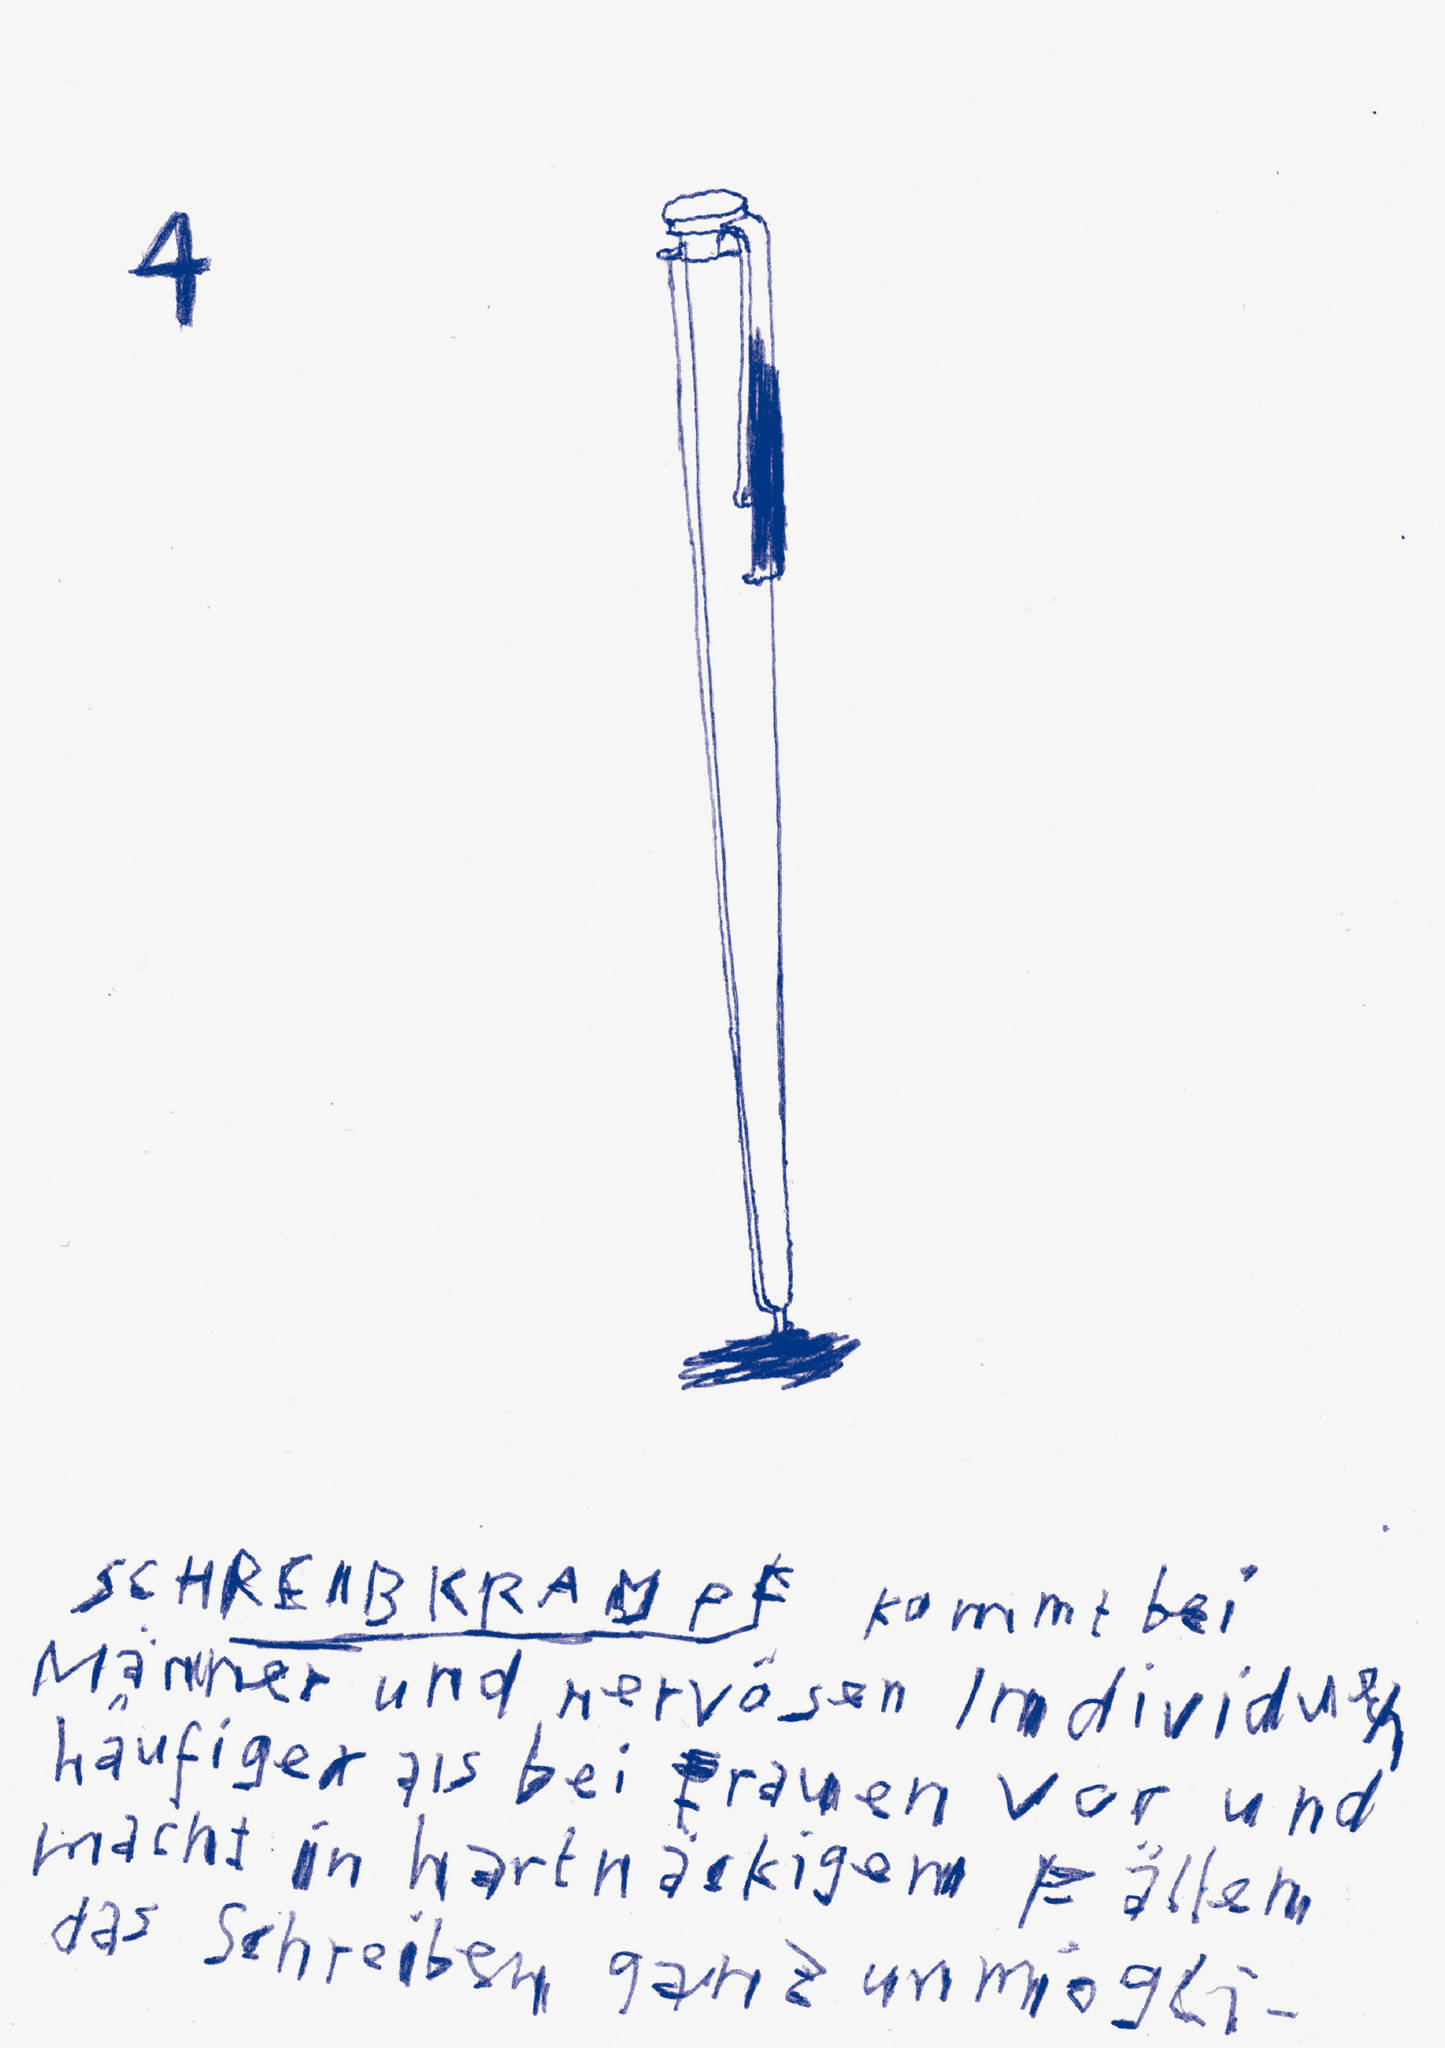 4
SCHREIBKRAMPF kommt bei
Männer und nervösen Individuen
häufiger als bei Frauen vor und
macht in hartnäckigen Fällen
das Schreiben ganz unmögli-